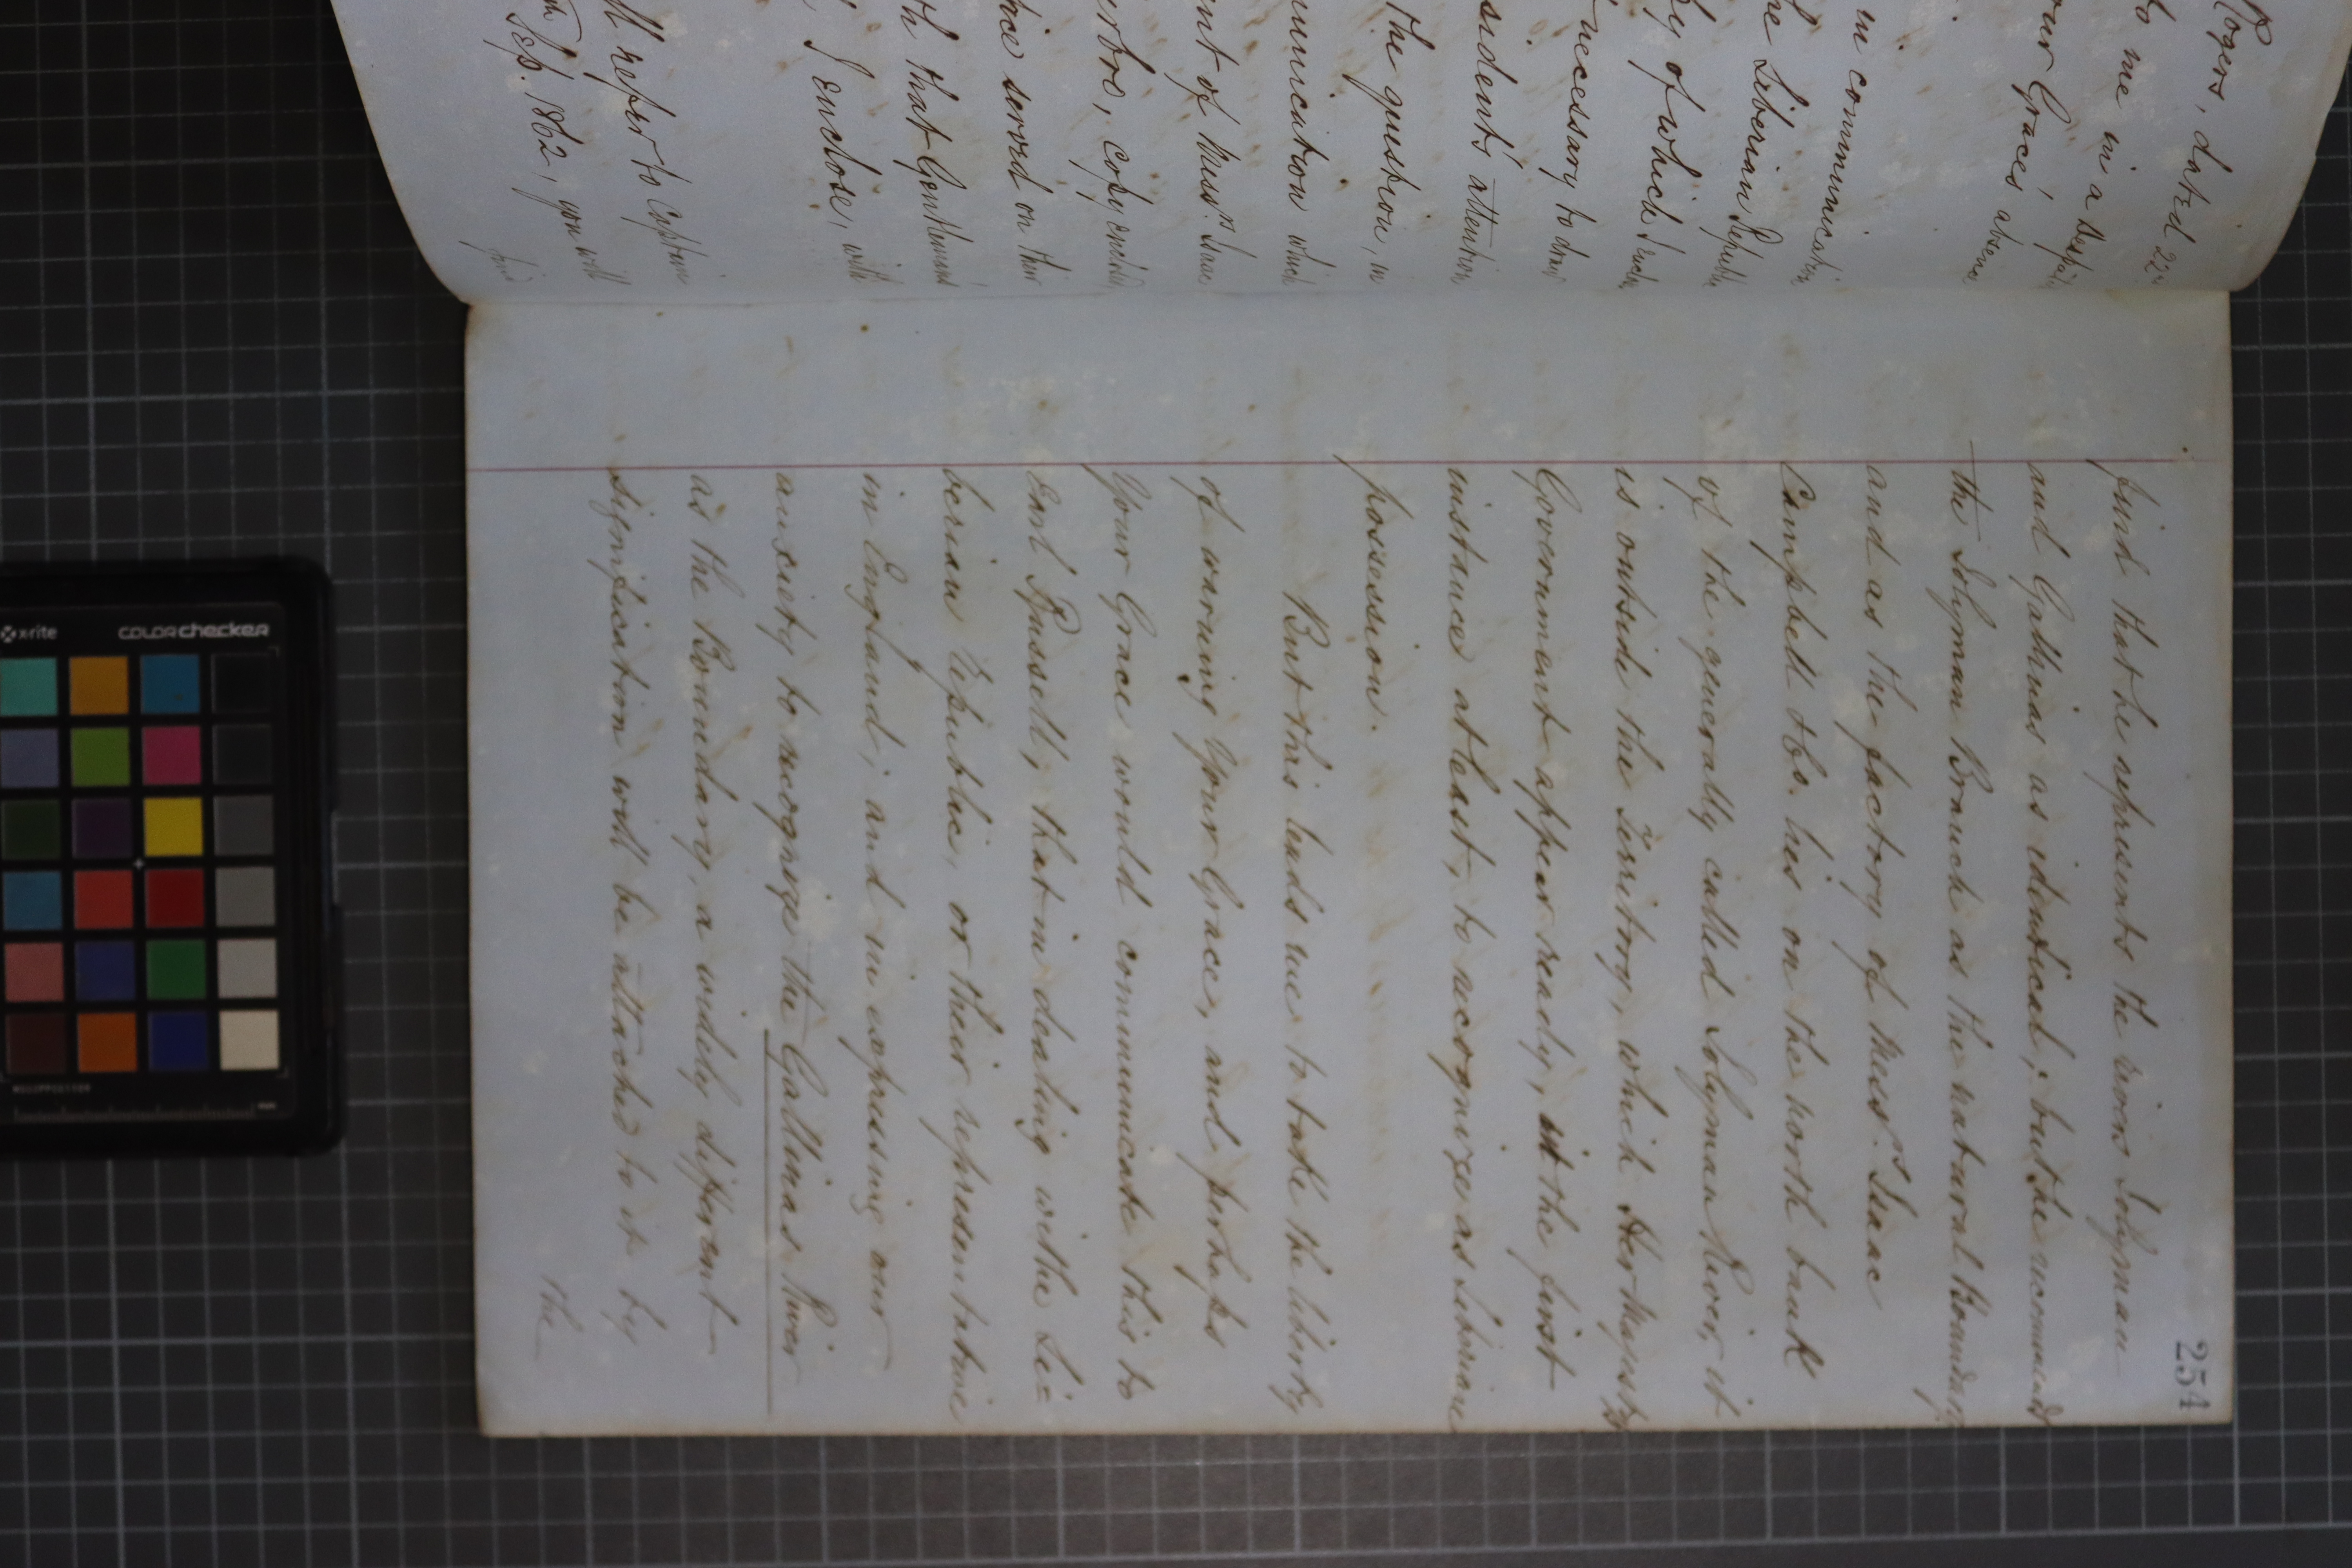 Rogers, dated 22nd
to me in a Despatch
our Grace's absence
in communication
he Liberian Republic
py of which I enclose
necessary to draw
sident's attention
the question, in
munication which
ent of Messrs. Isaac
erbro, copy enclosed
ice served on their
th that Gentleman
I enclose, with
ll refer to Captain
Sep. 1862, you will
find
254
find that he represents the rivers Solyman
and Gallinas as identical; but he recommends
the Solyman Branch as the natural Boundary
and as the factory of Messrs. Isaac
Campbell & Co. lies on the north bank
of the generally called Solyman River, it
is outside the Territory, which Her Majesty's
Government appear ready, in the first
instance at least, to recognize as Liberian
possession.
But this leads me to take the liberty
of warning Your Grace, and perhaps
Your Grace would communicate this to
Earl Russell, that in dealing with the Li=
berian Republic, or their representative
in England, and in expressing our
anxiety to recognize the Gallinas River
as the Boundary, a widely different
signification will be attached to it by
the